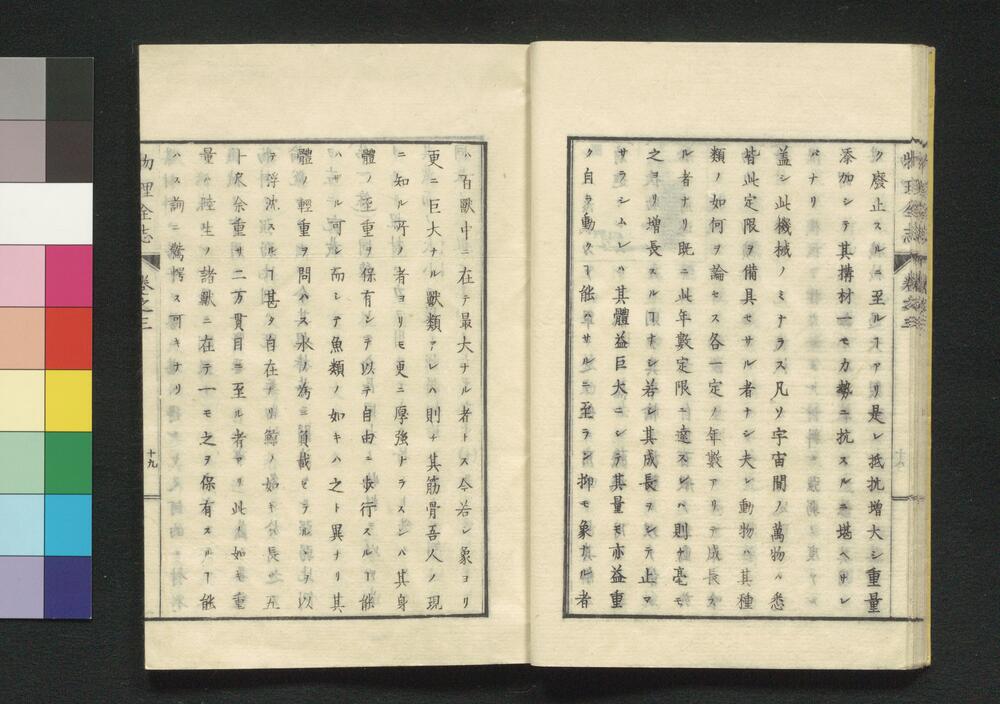 ク廢止スルニ至ルヿアリ是レ抵抗增大シ重量
添加シテ其搆材一モカ勢ニ抗スルニ堪ヘサレ
ハナリ
盖シ此機械ノミナラス凡ソ宇宙間ノ萬物ハ悉
皆此定限ヲ備具セサル者ナシ夫レ動物ハ其種
類ノ如何ヲ論セス各一定ノ年數アリテ成長ス
ル者ナリ既ニ此年數定限ニ達スレハ則ナ毫モ
之ヨリ增長スルヿナシ若シ其成長ヲシテ止マ
サラシムレハ其體益巨大ニシテ其量モ亦益重
ク自ラ動クヿ能ハサルニ至ラン抑モ象ナル者
ハ百獸中ニ在テ最大ナル者トス今若シ象ヨリ
更ニ巨大ナル獸類アレハ則ナ其筋骨吾人ノ現
ニ知ル所ノ者ヨリモ更ニ厚強ナラスンハ其身
體ノ至重ヲ保有シテ以テ自由ニ歩行スルヿ能
ハサル可シ而シテ魚類ノ如キハ之ト異ナリ其
體ノ輕重ヲ問ハス水ノ為ニ負載セラルヽヲ以
テ浮沈スルヿ甚タ自在ナリ鯨ノ如キ分長之五
十尺余重サ二万貫目ニ至ル者アリ此ノ如キ重
量ハ陸生ノ諸獸ニ在テ一モ之ヲ保有スルヿ能
ハス詢ニ驚愕ス可キナリ
物理全志
卷之三
十九